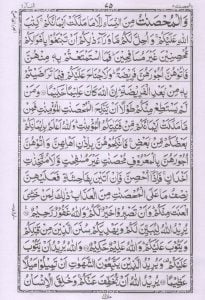 وَّالْمُحْصَنٰتُ مِنَ النِّسَآءِ اِلَّا مَا مَلَكَتْ اَيْمَانُكُمْ كِتٰبَ
اللّٰهِ عَلَيْكُمْ وَاُحِلَّ لَكُمْ مَّا وَرَآءَ ذٰلِكُمْ اَنْ تَبْتَغُوْا بِاَمْوَالِكُمْ
مُّحْصِنِيْنَ غَيْرَ مُسٰفِحِيْنَ فَمَا اسْتَمْتَعْتُمْ بِهٖ مِنْهُنَّ
فَاٰتُوْهُنَّ اُجُوْرَهُنَّ فَرِيْضَةً وَلَا جُنَاحَ عَلَيْكُمْ فِيْمَا تَرٰضَيْتُمْ
بِهٖ مِنْ بَعْدِ الْفَرِيْضَةِ اِنَّ اللّٰهَ كَانَ عَلِيْمًا حَكِيْمًا وَمَنْ
لَّمْ يَسْتَطِعْ مِنْكُمْ طَوْلًا اَنْ يَّنْكِحَ الْمُحْصَنٰتِ الْمُؤْمِنٰتِ فَمِنْ
مَّا مَلَكَتْ اَيْمَانُكُمْ مِّنْ فَتَيٰتِكُمُ الْمُؤْمِنٰتِ وَاللّٰهُ اَعْلَمُ بِاِيْمَانِكُمْ
بَعْضُكُمْ مِّنْ بَعْضٍ فَانْكِحُوْهُنَّ بِاِذْنِ اَهْلِهِنَّ وَاٰتُوْهُنَّ
اُجُوْرَهُنَّ بِالْمَعْرُوْفِ مُحْصَنٰتٍ غَيْرَ مُسٰفِحٰتٍ وَّلَا مُتَّخِذٰتِ
اَخْدَانٍ فَاِذَا اُحْصِنَّ فَاِنْ اَتَيْنَ بِفَاحِشَةٍ فَعَلَيْهِنَّ
نِصْفُ مَا عَلَى الْمُحْصَنٰتِ مِنَ الْعَذَابِ ذٰلِكَ لِمَنْ خَشِيَ
الْعَنَتَ مِنْكُمْ وَاَنْ تَصْبِرُوْا خَيْرٌ لَّكُمْ وَاللّٰهُ غَفُوْرٌ رَّحِيْمٌ
يُرِيْدُ اللّٰهُ لِيُبَيِّنَ لَكُمْ وَيَهْدِيَكُمْ سُنَنَ الَّذِيْنَ مِنْ قَبْلِكُمْ
وَيَتُوْبَ عَلَيْكُمْ وَاللّٰهُ عَلِيْمٌ حَكِيْمٌ وَاللّٰهُ يُرِيْدُ اَنْ يَّتُوْبَ
عَلَيْكُمْ وَيُرِيْدُ الَّذِيْنَ يَتَّبِعُوْنَ الشَّهَوٰتِ اَنْ تَمِيْلُوْا مَيْلًا
عَظِيْمًا يُرِيْدُ اللّٰهُ اَنْ يُّخَفِّفَ عَنْكُمْ وَخُلِقَ الْاِنْسَانُ